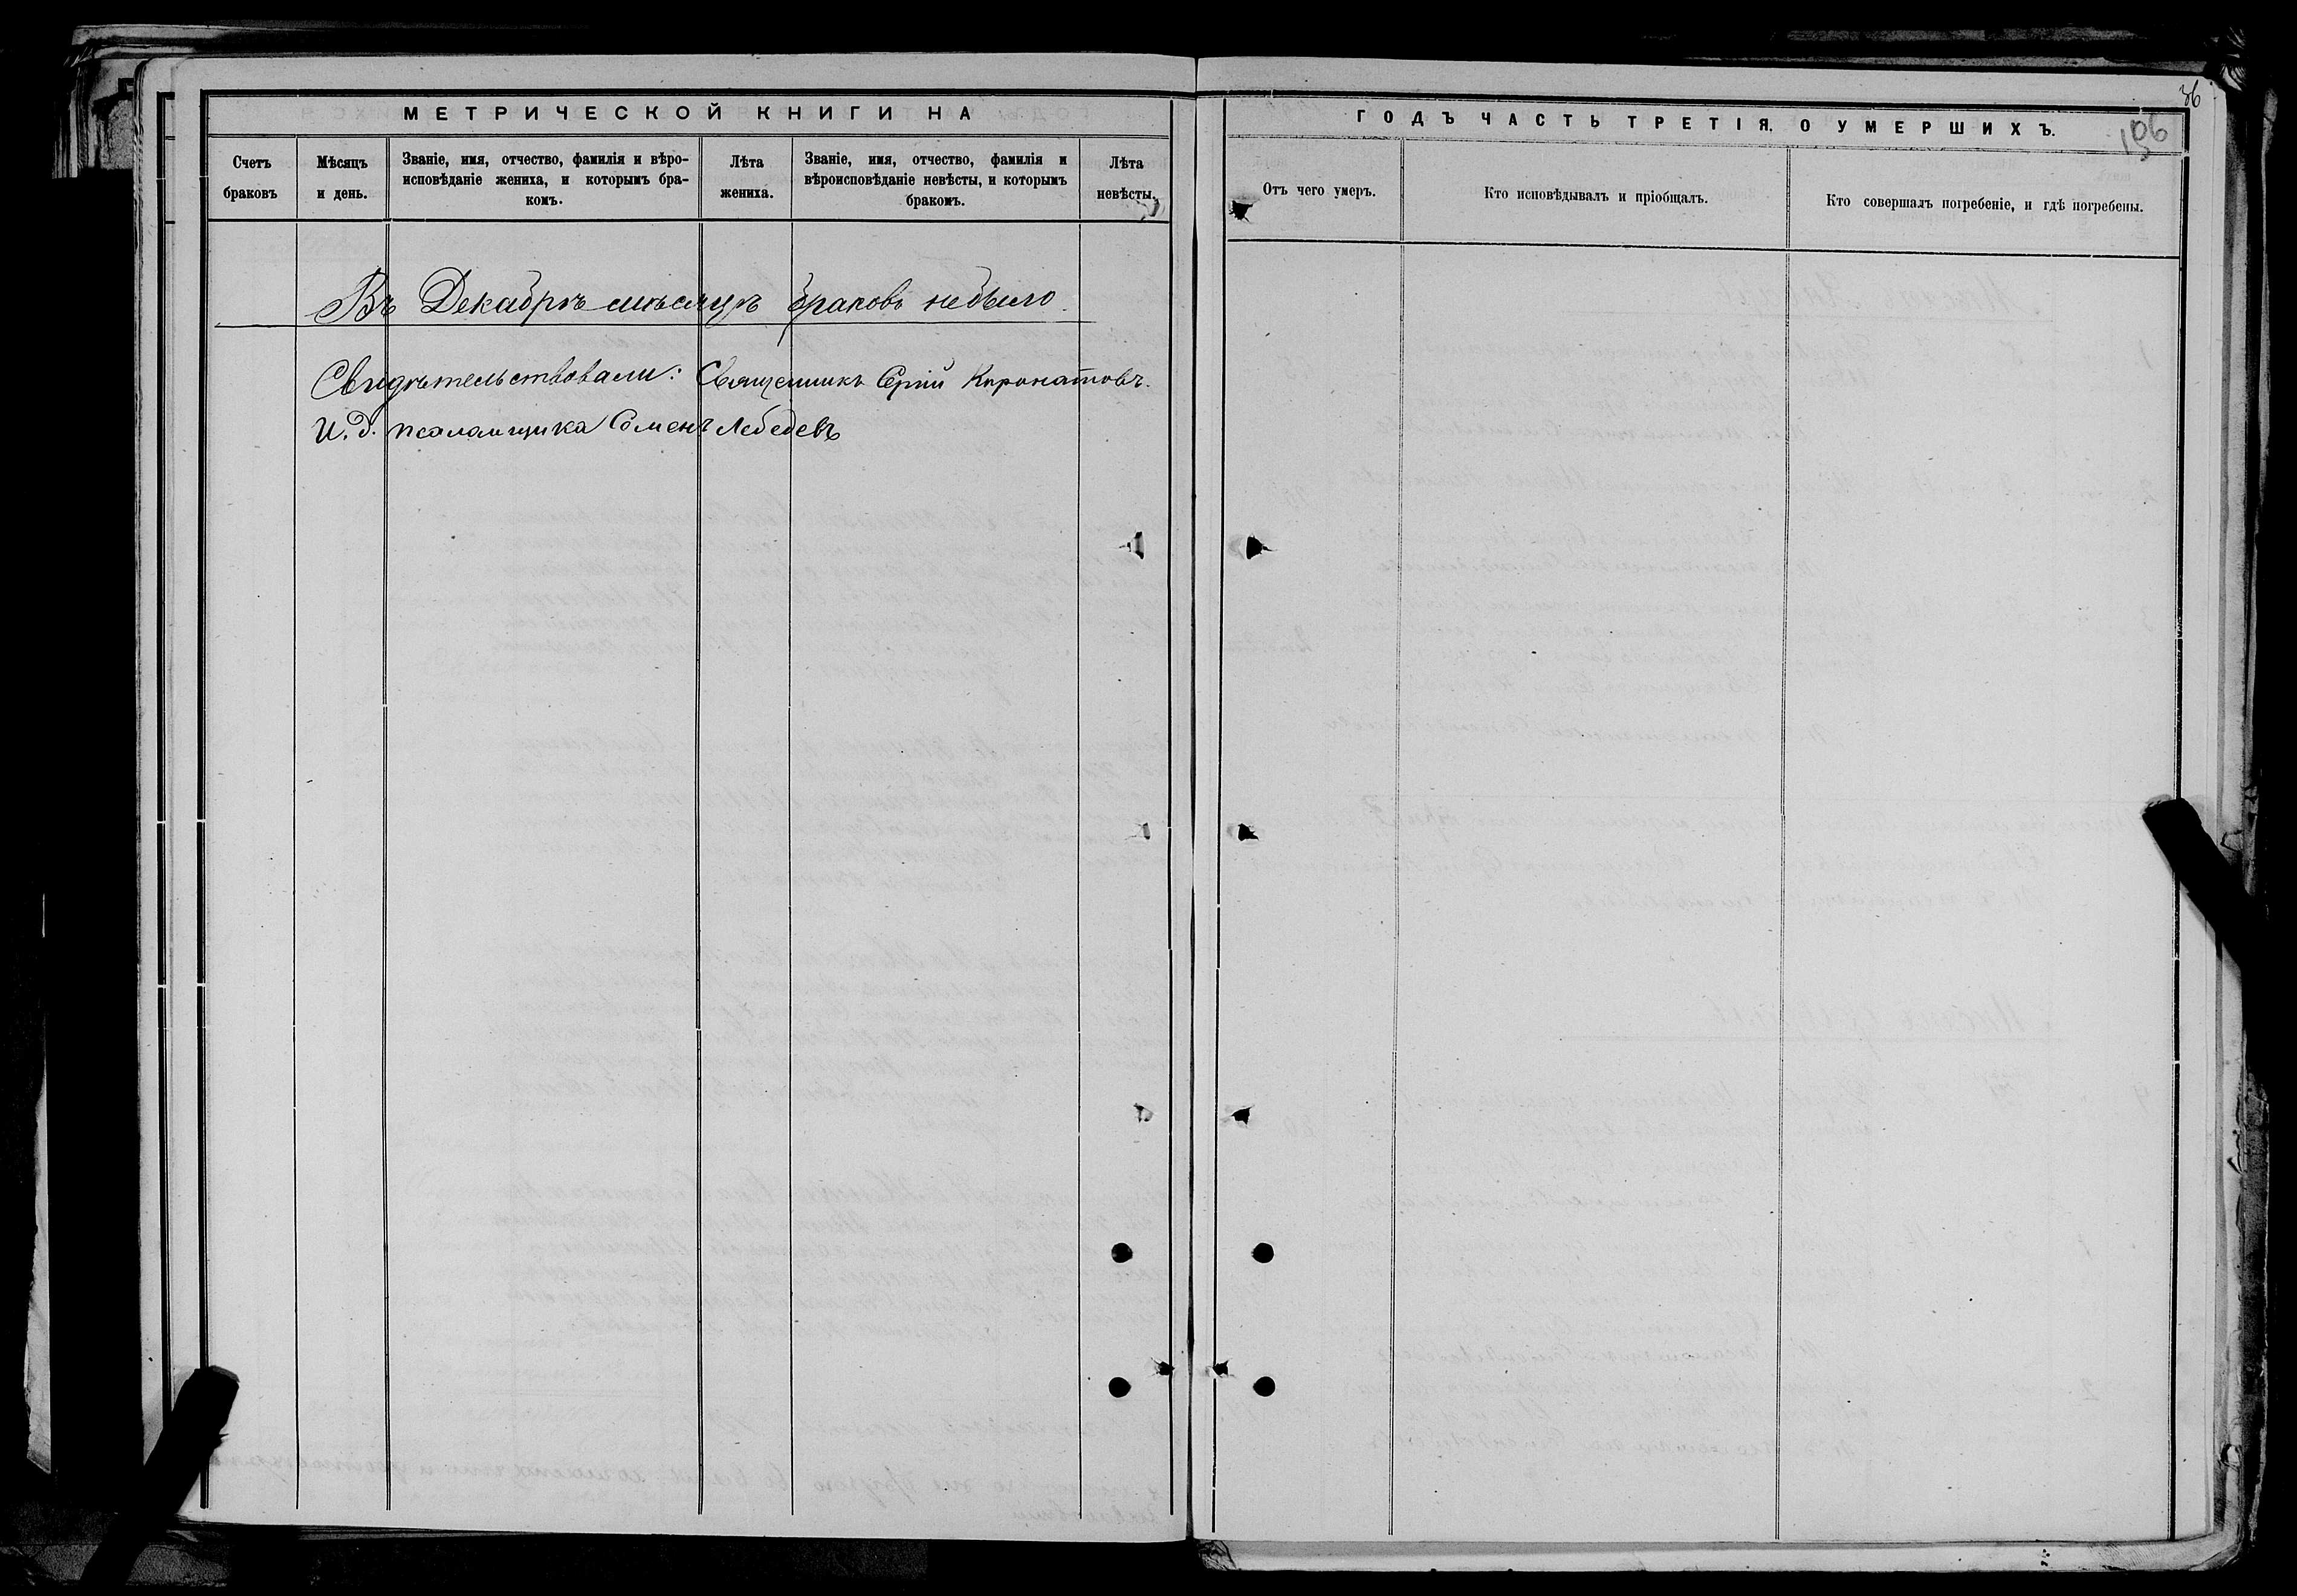 МЕТРИЧЕСКОЙ КНИГИ НА
Счетъ браковъ
Мѣсяцъ и день.
Званіе, имя, отчество, фамилія и вѣро-
исповѣданіе жениха, и которымъ бра-
комъ.
Лѣта жениха.
Званіе, имя, отчество, фамилія и
вѣроисповѣданіе невѣсты, и которымъ
бракомъ.
Лѣта невѣсты.
Въ Декабрѣ мѣсяцѣ браковъ небыло.
Свидѣтельствовали: Священникъ
И. д. псаломщика Семенъ Лебедевъ
36
ГОДЪ ЧАСТЬ ТРЕТІЯ. О УМЕРШИХЪ.
Отъ чего умеръ.
Кто исповѣдывалъ и пріобщалъ.
Кто совершалъ погребеніе, и гдѣ погребены.